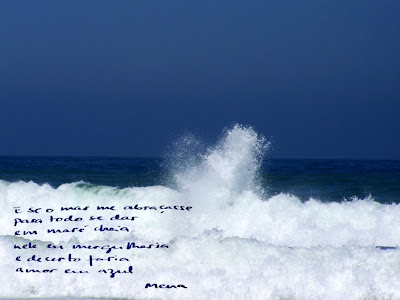 E se o mar me abraçasse
para todo se dar
em maré cheia
nele eu mergulharia
e decerto faria
amor em azul
Mena